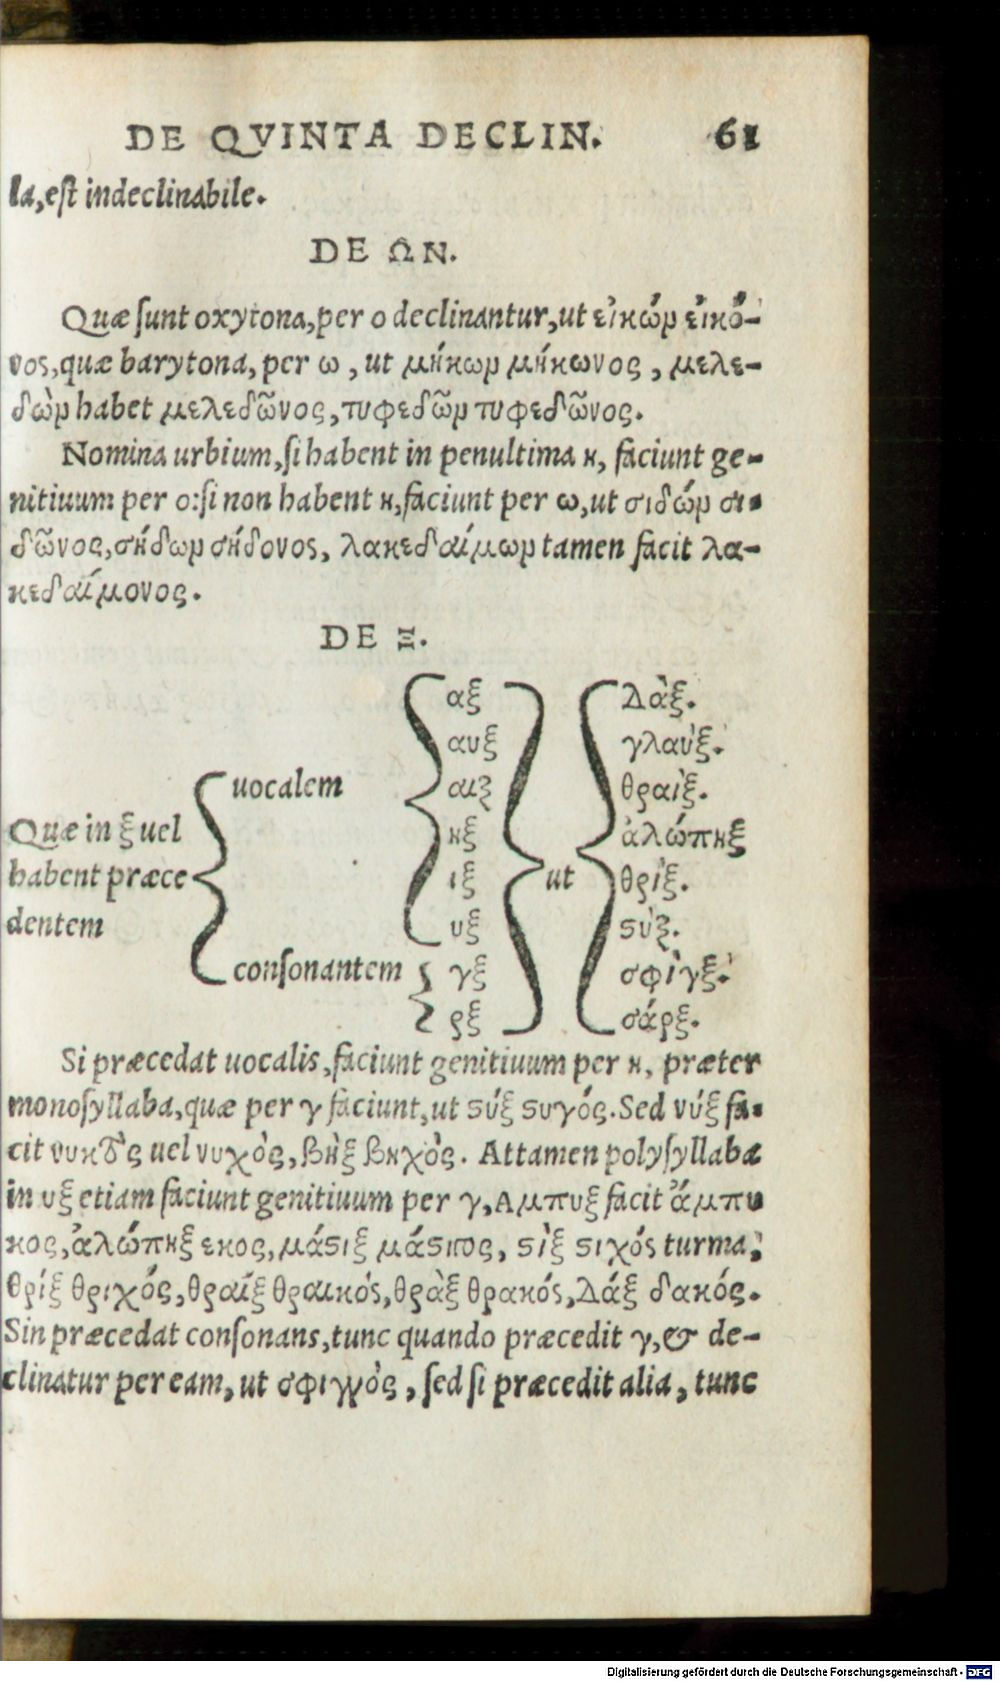 DE QVINTA DECLIN. 61
la, est indeclinabile.
DE ΩΝ.
Quæ sunt oxytona, per o declinantur, ut εἰκώμ εἰκό-
νος, quæ barytona, per ω, ut μήκωμ μήκωνος, μελε-
δὼμ habet μελεδῶνος, τυφεδῶμ τυφεδῶνος.
Nomina urbium, si habent in penultima κ, faciunt ge-
nitiuum per o: si non habent κ, faciunt per ω, ut σιδώμ σι-
δῶνος, σήδωμ σήδονος, λακεδαίμωμ tamen facit λα-
κεδαίμονος.
DE Ξ.
Quæ in ξ uel
habent præce
dentem
uocalem
consonantem
αξ
αυξ
αιξ
ηξ
ιξ
υξ
γξ
ρξ
ut
Δὰξ.
γλαὺξ.
θραὶξ.
ἀλώπηξ
θρὶξ.
ϛὺξ.
σφὶγξ.
σάρξ.
Si præcedat uocalis, faciunt genitiuum per κ, præter
monosyllaba, quæ per γ faciunt, ut ϛύξ ϛυγός. Sed νύξ fa-
cit νυκτὸς uel νυχὸς, βὴξ βηχὸς. Attamen polysyllaba
in υξ etiam faciunt genitiuum per γ, Αμπυξ facit ἄμπυ
κος, ἀλώπηξ εκος, μάϛιξ μάϛιγος, ϛὶξ ϛιχός turma,
θρίξ θριχός, θραίξ θραικός, θρὰξ θρακός, Δάξ δακός.
Sin præcedat consonans, tunc quando præcedit γ, & de-
clinatur per eam, ut σφιγγὸς, sed si præcedit alia, tunc
Digitalisierung gefördert durch die Deutsche Forschungsgemeinschaft - DFG